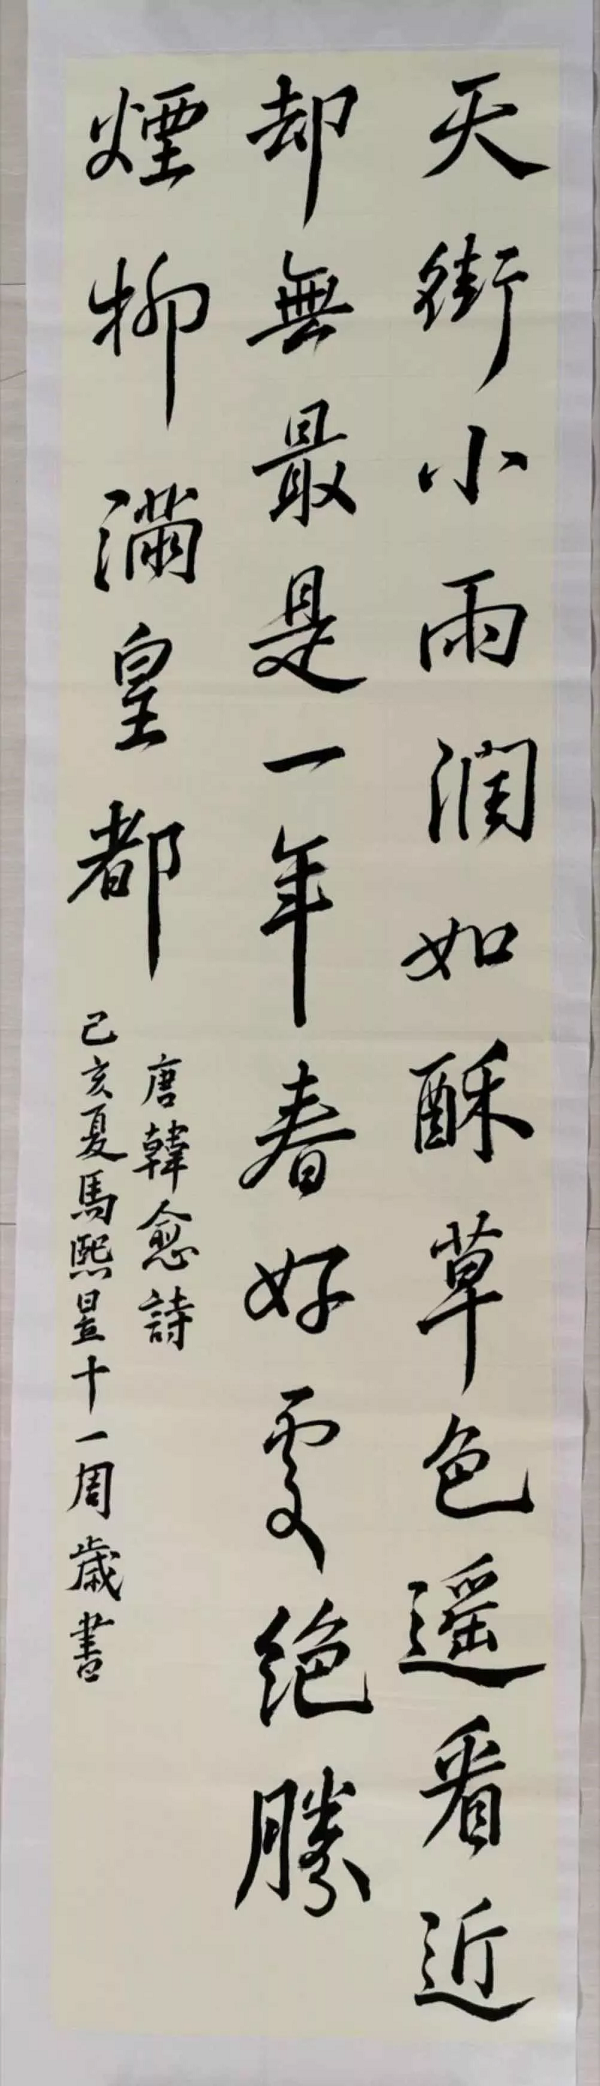 天街小雨潤如酥草色遥看近
却無最是一年春好處絶勝
煙柳滿皇都
唐韓愈詩
己亥夏馬熙昱十一周歲書